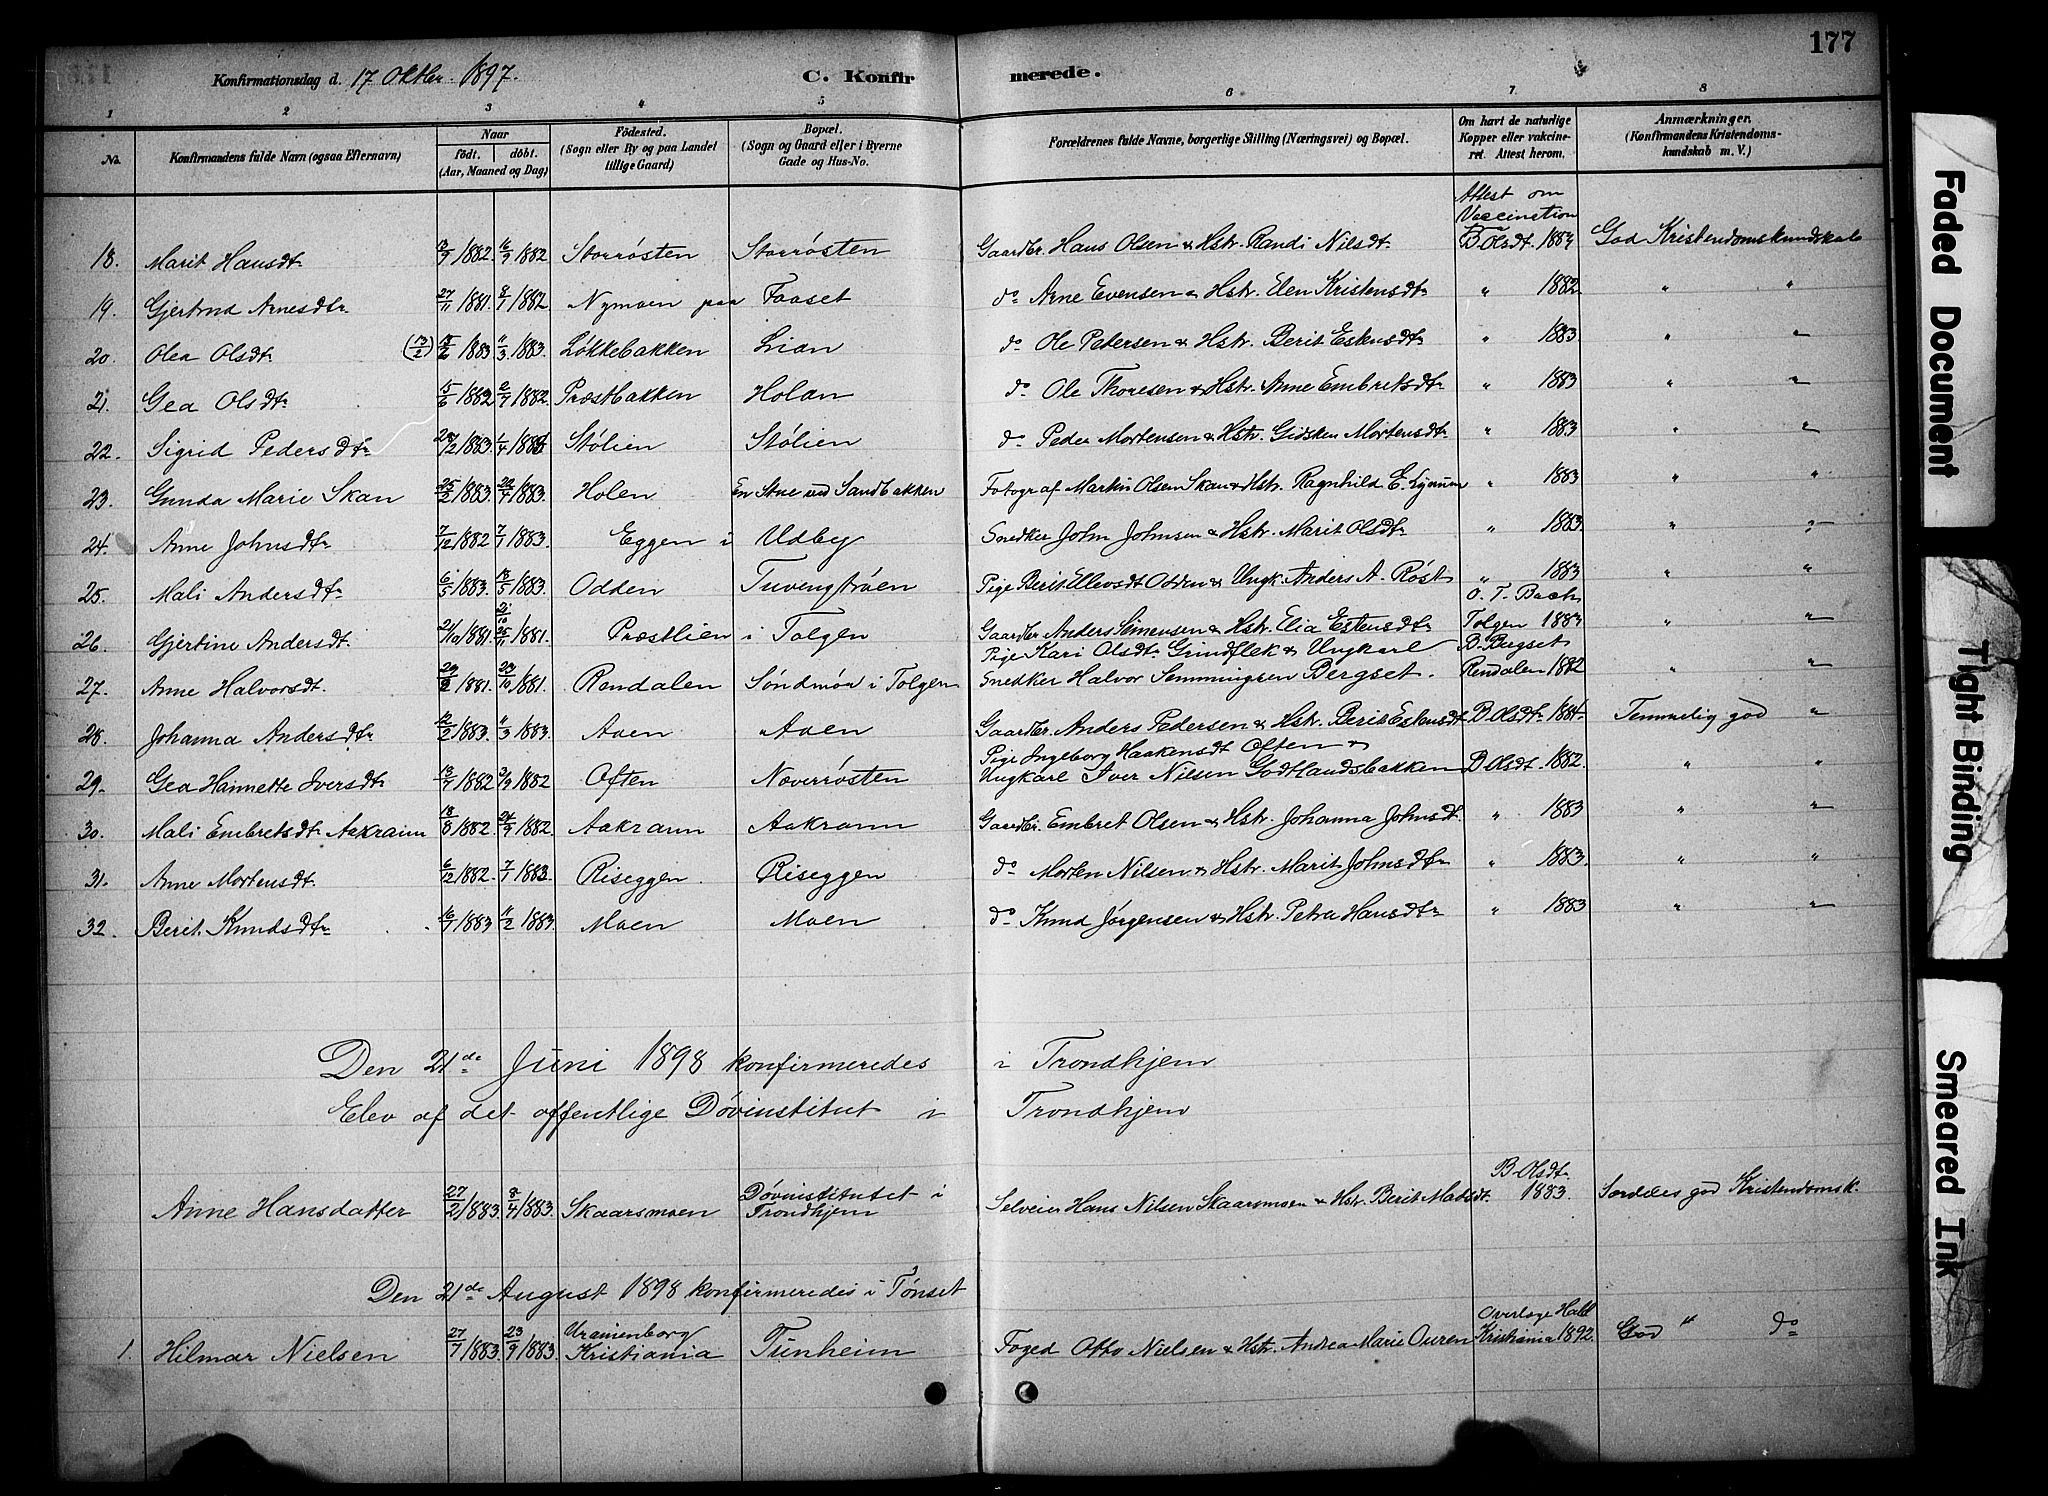 177
Konfirmationsdag d. 17 Oktbr. 1897.
C. Konfirmerede.
1 2 3 4 5 6 7 8
No. Konfirmandens fulde Navn (ogsaa Efternavn) Naar födt. döbt. (Aar, Maaned og Dag) Födested. (Sogn eller By og paa Landet tillige Gaard) Bopæl. (Sogn og Gaard eller i Byerne Gade og Hus-No. Forældrenes fulde Navne, borgerlige Stilling (Næringsvei) og Bopæl. Om havt de naturlige Kopper eller vakcineret. Attest herom. Anmærkninger. (Konfirmandens Kristendomskundskab m. V.)
Attest om
Vaccination
18. Marit Hansdtr 13/9 1882 16/9 1882 Storrøsten Storrøsten Gaardbr. Hans Olsen & Hstr. Randi Nilsdtr B. Olsdtr 1883 God Kristendomskundskab
19. Gjertrud Arnesdtr 27/11 1881. 8/1 1882. Nymoen paa Faaset do Arne Evensen & Hstr. Elen Kristensdtr " 1882 " "
20. Olea Olsdtr (13/2) 15/2 1883 11/3 1883. Løkkebakken Lian do Ole Pedersen & Hstr. Berit Estensdtr " 1883 " "
21. Gea Olsdtr 15/6 1882 2/7 1882. Præstbakken Holan do Ole Thoresen & Hstr. Anne Embretsdtr " 1883 " "
22. Sigrid Pedersdtr 28/2 1883. 1/4 1883 Stølien Stølien do Peder Mortensen & Hstr. Gidsken Mortensdtr " 1883 " "
23. Gunda Marie Skan 25/2 1883. 22/4 1883. Holen En Stue ved Sandbakken Fotograf Martin Olsen Skan & Hstr. Ragnhild E. " 1883 " "
24. Anne Johnsdtr 7/12 1882 7/1 1883. Eggen i Udby Snedker John Johnsen & Hstr. Marit Olsdtr " 1883. " "
25. Mali Andersdtr 6/5 1883. 18/5 1883. Odden Tuvengtrøen Pige Berit Ellevsdt Odden & Ungk. Anders A. Røst " 1883 " "
26. Gjertine Andersdt. 21/10 1881. 2/10 25/11 1881. Præstlien i Tolgen Gaardbr Anders Simensen & Hstr. Elia Estensdtr O. T. Bach Tolgen 1883 " "
27. Anne Halvorsdt. 29/9 1881. 23/10 1881. Rendalen Søndmør i Tolgen Pige Kari Olsdtr Grindflek & Ungkarl Snedker Halvor Semmingsen Bergset. B. Bergset Rendalen 1882 " "
28. Johanna Andersdtr 12/2 1883. 11/3 1883. Aaen Aaen Gaardbr. Anders Pedersen & Hstr. Berit Estensdt. B. Olsdtr 1884. Temmelig god "
29. Gea Hannette Iversdtr 13/7 1882 3/9 1882 Often Næverrøsten Pige Ingeborg Haakensdt Often & Ungkarl Iver Nilsen Godtlandsbakken B. Olsdt. 1882. " "
30. Mali Embretsdt. Aakrann 18/8 1882. 24/9 1882. Aakrann Aakrann Gaardbr. Embret Olsen & Hstr. Johanna Johnsdt. " 1883 " "
31. Anne Mortensdt. 6/12 1882. 7/1 1883. Riseggen Riseggen do Morten Nilsen & Hstr. Marit Johnsdtr " 1883. " "
32. Berit Knudsdtr 16/1 1883 11/2 1883. Moen Moen do Knud Jørgensen & Hstr. Petra Hansdtr " 1883 " "
Den 21de Juni 1898 konfirmeredes i Trondhjem
Elev af det offentlige Døvinstitut i Trondhjem
Anne Hansdatter 27/2 1883. 8/4 1883. Skaarsmoen Døvinstitutet i Trondhjem Selveier Hans Nilsen Skaarsmoen & Hstr. Berit Matsdt. B. Olsdtr 1883. Særdeles god Kristendomsk.
Den 21de August 1898 konfirmeredes i Tønset
1. Hilmar Nielsen 27/7 1883. 23/9 1883. Uranienborg Kristiania Tunheim Foged Otto Nielsen & Hstr. Andrea Marie Ouren Overlæge Hald Kristiania 1892. God " do
Faded Document
Tight Binding
Smeared Ink